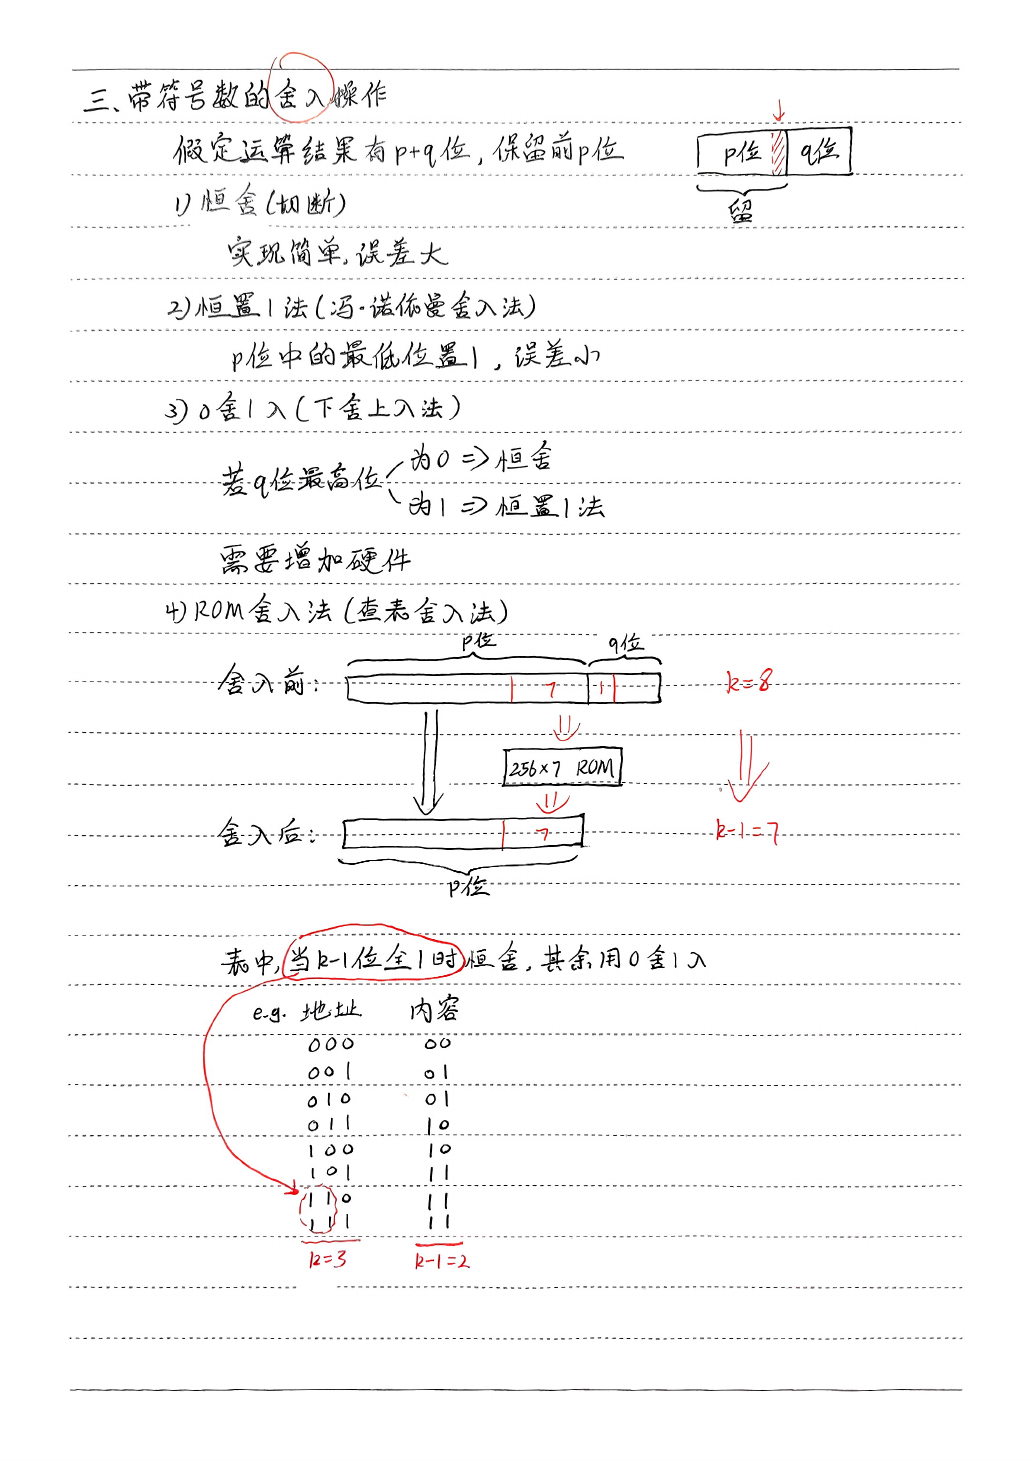 三、带符号数的舍入操作
假定运算结果有p+q位，保留前p位
p位 q位
留
1) 恒舍(切断)
实现简单，误差大
2) 恒置1法(冯·诺依曼舍入法)
p位中的最低位置1，误差小
3) 0舍1入(下舍上入法)
若q位最高位
为0 => 恒舍
为1 => 恒置1法
需要增加硬件
4) ROM舍入法(查表舍入法)
p位 q位
舍入前： 7 1 k=8
256×7 ROM
舍入后： 7 k-1=7
p位
表中，当k-1位全1时恒舍，其余用0舍1入
e.g. 地址 内容
000 00
001 01
010 01
011 10
100 10
101 11
110 11
111 11
k=3 k-1=2